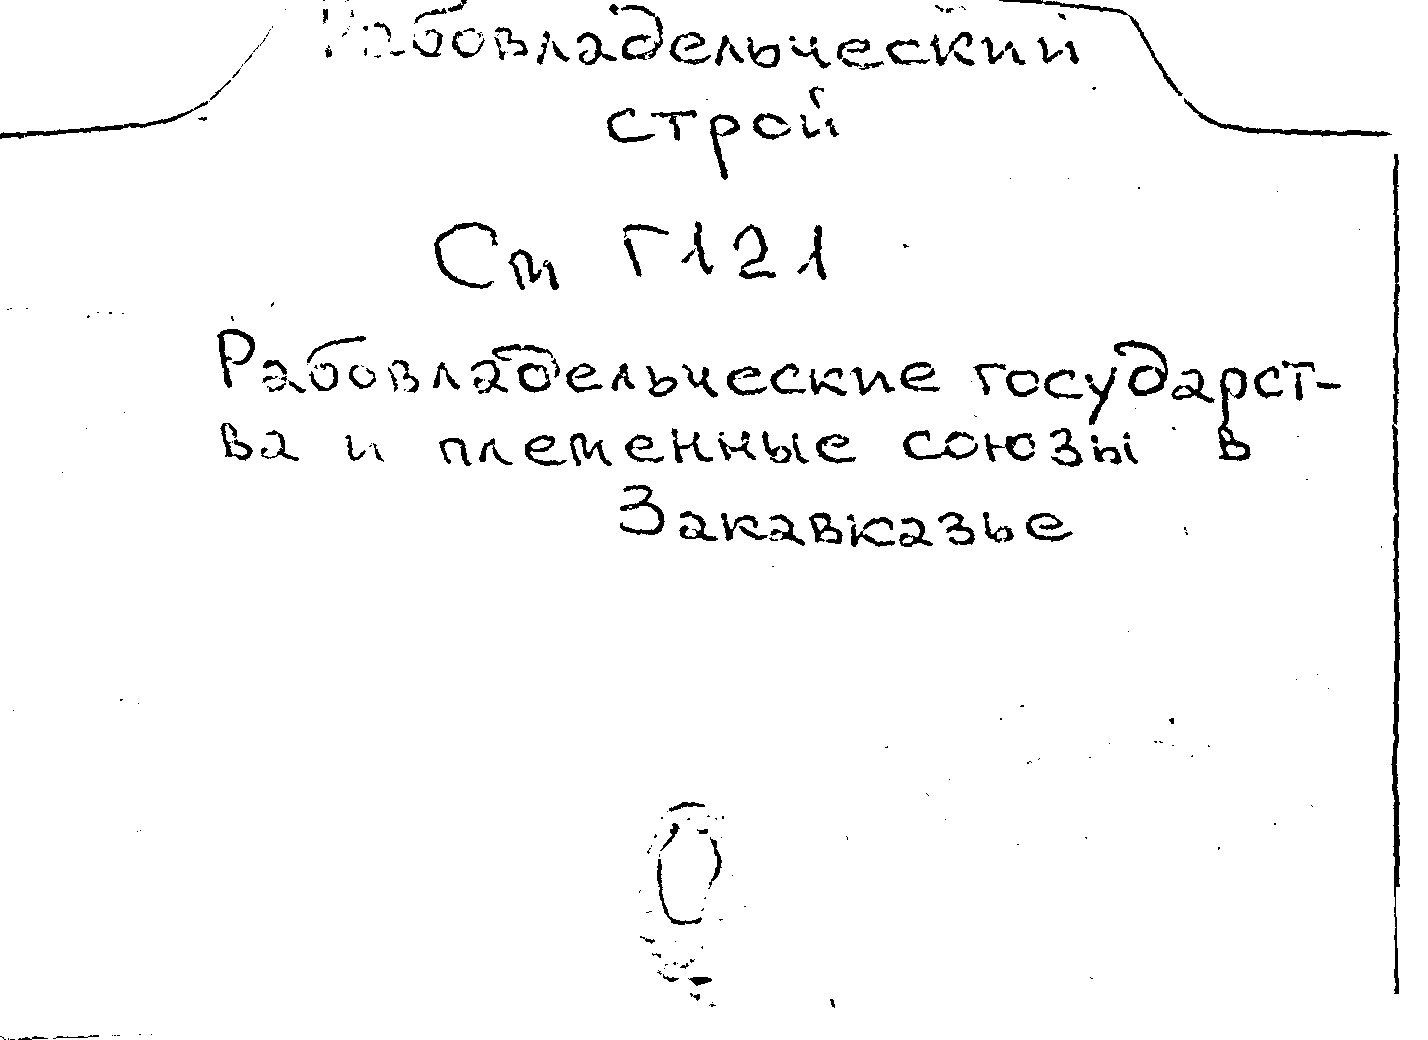 Рабовладельческий
строй
См Г121
Рабовладельческие государст-
ва и племенные союзы в
Закавказье